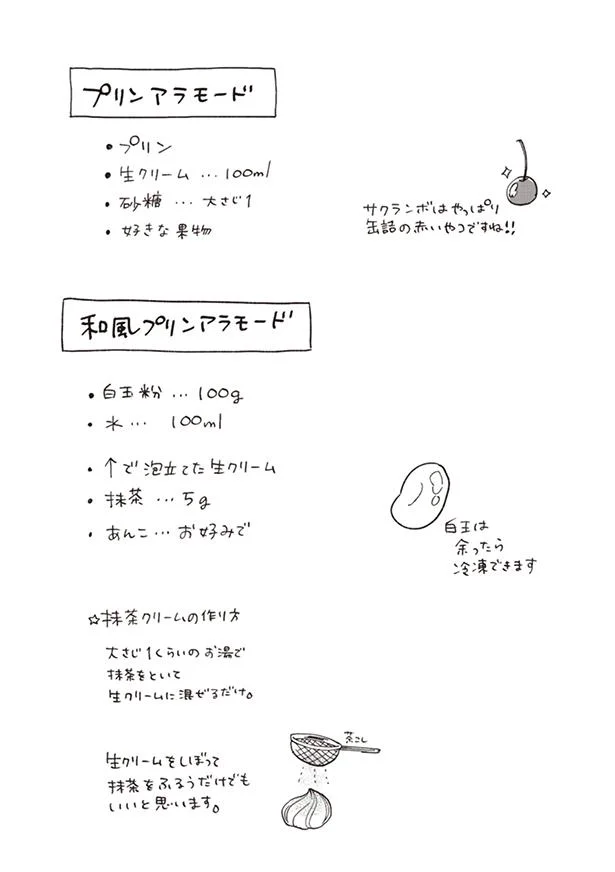 プリンアラモード
・プリン
・生クリーム…100ml
・砂糖…大さじ1
・好きな果物
サクランボはやっぱり
缶詰の赤いやコですね!!
和風プリンアラモード
・白玉粉…100g
・水…100ml
・↑で泡立てた生クリーム
・抹茶…5g
・あんこ…お好みで
白玉は
余ったら
冷凍できます
☆抹茶クリームの作り方
大さじ1くらいのお湯で
抹茶をといて
生クリームに混ぜるだけ。
茶こし
生クリームをしぼって
抹茶をふるうだけでも
いいと思います。